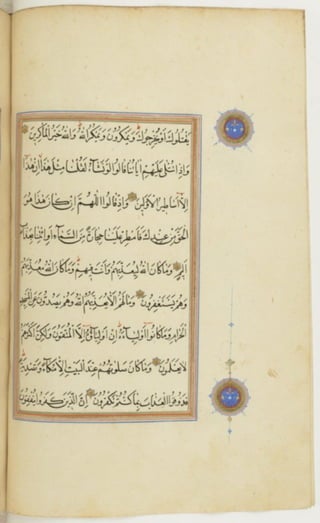 يَقْتُلُوكَ اَوْ يُخْرِجُوكَ وَيَمْكُرُونَ وَيَمْكُرُ اللهُ وَاللهُ خَيْرُ الْمَاكِرِينَ
وَاِذَا تُتْلٰى عَلَيْهِمْ اٰيَاتُنَا قَالُوا لَوْ نَشَآءُ لَقُلْنَا مِثْلَ هٰذَا اِنْ هٰذَا
اِلَّا اَسَاطِيرُ الْاَوَّلِينَ وَاِذْ قَالُوا اللّٰهُمَّ اِنْ كَانَ هٰذَا هُوَ
الْحَقَّ مِنْ عِنْدِكَ فَاَمْطِرْ عَلَيْنَا حِجَارَةً مِنَ السَّمَآءِ اَوِ ائْتِنَا بِعَذَابٍ
اَلِيمٍ وَمَا كَانَ اللهُ لِيُعَذِّبَهُمْ وَاَنْتَ فِيهِمْ وَمَا كَانَ اللهُ مُعَذِّبَهُمْ
وَهُمْ يَسْتَغْفِرُونَ وَمَا لَهُمْ اَلَّا يُعَذِّبَهُمُ اللهُ وَهُمْ يَصُدُّونَ عَنِ الْمَسْجِدِ
الْحَرَامِ وَمَا كَانُوا اَوْلِيَآءَهُ اِنْ اَوْلِيَآؤُهُ اِلَّا الْمُتَّقُونَ وَلٰكِنَّ اَكْثَرَهُمْ
لَا يَعْلَمُونَ وَمَا كَانَ صَلَوتُهُمْ عِنْدَ الْبَيْتِ اِلَّا مُكَآءً وَتَصْدِيَةً
فَذُوقُوا الْعَذَابَ بِمَا كُنْتُمْ تَكْفُرُونَ اِنَّ الَّذِينَ كَفَرُوا يُنْفِقُونَ